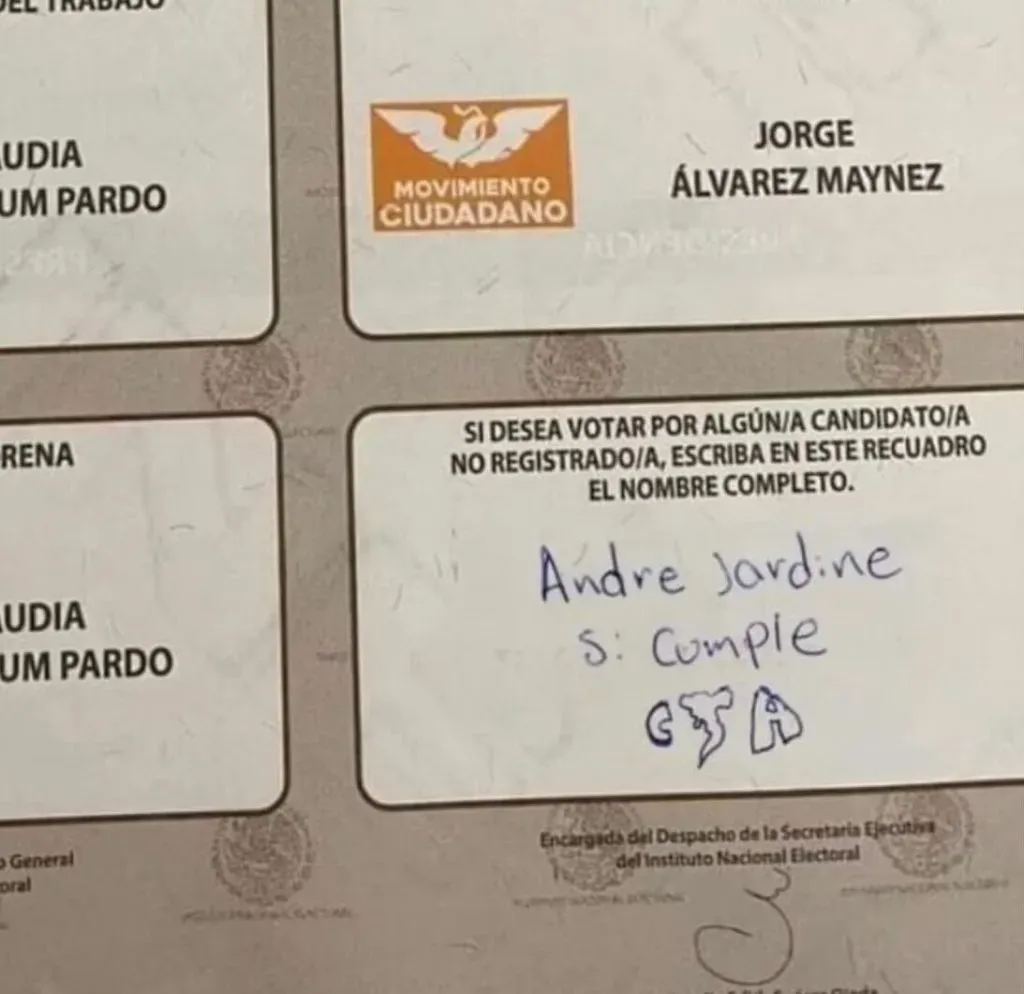 DEL TRABAJO
UDIA
UM PARDO
MOVIMIENTO
CIUDADANO
JORGE
ÁLVAREZ MAYNEZ
RENA
UDIA
UM PARDO
SI DESEA VOTAR POR ALGÚN/A CANDIDATO/A
NO REGISTRADO/A, ESCRIBA EN ESTE RECUADRO
EL NOMBRE COMPLETO.
Andre Jardine
Si Cumple
GTA
o General
oral
Encargada del Despacho de la Secretaría Ejecutiva
del Instituto Nacional Electoral